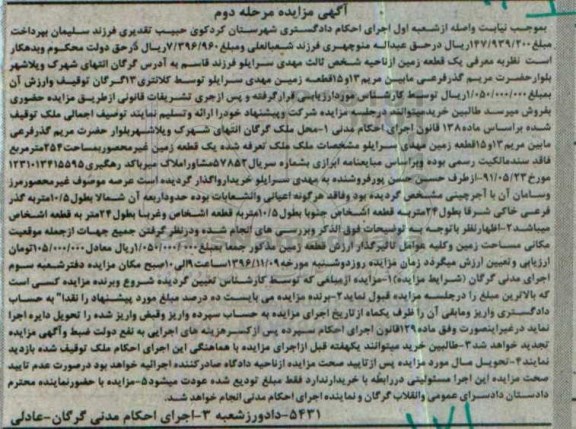 آگهی مزایده مرحله دوم
بموجب نیابت واصله ازشعبه اول اجرای احکام دادگستری شهرستان کردکوی حبیب تقدیری فرزند سلیمان بپرداخت
مبلغ ۱۳۷/۹۳۹/۳۰۰ریال درحق عبداله منوچهری فرزند شعبانعلی ومبلغ ۷/۳۹۶/۹۶۰ریال درحق دولت محکوم وبدهکار
است نظریه معرفی یک قطعه زمین ازناحیه شخص ثالث مهدی سرایلو فرزند قاسم به آدرس گرگان انتهای شهرک ویلاشهر
بلوارحضرت مریم گذرفرعی مابین مریم۱۳و۱۵قطعه زمین مهدی سرایلو توسط کلانتری۱۳گرگان توقیف وارزش آن
بمبلغ۱/۰۵۰/۰۰۰/۰۰۰ریال توسط کارشناس موردارزیابی قرارگرفته و پس ازجری تشریفات قانونی ازطریق مزایده حضوری
بفروش میرسد طالبین خریدمیتوانند درجلسه مزایده شرکت وپیشنهاد خودرا ارائه وتسلیم نمایند توصیف اجمالی ملک توقیف
شده براساس ماده۱۳۸ قانون اجرای احکام مدنی ۱-محل ملک گرگان انتهای شهرک ویلاشهربلوار حضرت مریم گذرفرعی
مابین مریم۱۳و۱۵قطعه زمین مهدی سرایلو مشخصات ملک ملک تعرفه شده یک قطعه زمین غیرمحصوربمساحت۲۵۴مترمربع
فاقد سندمالکیت رسمی بوده وبراساس مبایعنامه ابرازی بشماره سریال۵۷۸۵۲مشاوراملاک میرباکد رهگیری۱۲۳۱۰۱۳۴۱۵۵۹۵
مورخ۹۱/۰۵/۲۳-ازطرف حسین حسن پورفروشنده به مهدی سرایلو خریدارواگذار گردیده است عرصه موصوف غیرمحصورمرز
وسامان آن با آجرچینی مشخص گردیده بود وفاقد هرگونه اعیانی وانشعابات بوده حدوداربعه آن شمالا بطول۱۰/۵متربه گذر
فرعی خاکی شرقا بطول۲۴متربه قطعه اشخاص جنوبا بطول۱۰/۵متربه قطعه اشخاص وغربا بطول۲۴متر به قطعه اشخاص
میباشد۲-اظهارنظر باتوجه به توضیحات فوق الذکر وبررسی های انجام شده ودرنظرگرفتن جمیع جهات ازجمله موقعیت
مکانی مساحت زمین وکلیه عوامل تاثیرگذار ارزش قطعه زمین مذکور جمعا بمبلغ۱/۰۵۰/۰۰۰/۰۰۰ریال معادل ۱۰۵/۰۰۰/۰۰۰تومان
ارزیابی وتعیین ارزش میگردد زمان مزایده روزدوشنبه مورخه۱۳۹۶/۱۱/۰۹ساعت۹الی۱۰صبح مکان مزایده دفترشعبه سوم
اجرای مدنی گرگان (شرایط مزایده)۱-مزایده ازمبلغی که توسط کارشناس تعیین گردیده شروع وبرنده مزایده کسی است
که بالاترین مبلغ را درجلسه مزایده قبول نماید۲-برنده مزایده می بایست ده درصد مبلغ مورد پیشنهاد را نقدا" به حساب
دادگستری واریز ومابقی آن را ظرف یکماه ازتاریخ اجرای مزایده به حساب سپرده واریز وقبض واریز شده را تحویل دایره اجرا
نماید درغیراینصورت وفق ماده۱۲۹قانون اجرای احکام سپرده پس ازکسرهزینه های اجرایی به نفع دولت ضبط وآگهی مزایده
تجدید خواهد شد۳-طالبین خرید میتوانند یکهفته قبل ازاجرای مزایده با هماهنگی این اجرای احکام ملک توقیف شده بازدید
نمایند۴-تحویل مال مورد مزایده پس ازتایید صحت مزایده ازناحیه دادگاه صادرکننده اجرائیه خواهد بود درصورت عدم تایید
صحت مزایده این اجرا مسئولیتی دررابطه با خریدارندارد فقط مبلغ تودیع شده عودت میشود۵-مزایده با حضورنماینده محترم
دادستان دادسرای عمومی وانقلاب گرگان و نماینده اجرای احکام مدنی انجام خواهد شد.
۵۴۳۱-دادورزشعبه ۳-اجرای احکام مدنی گرگان-عادلی